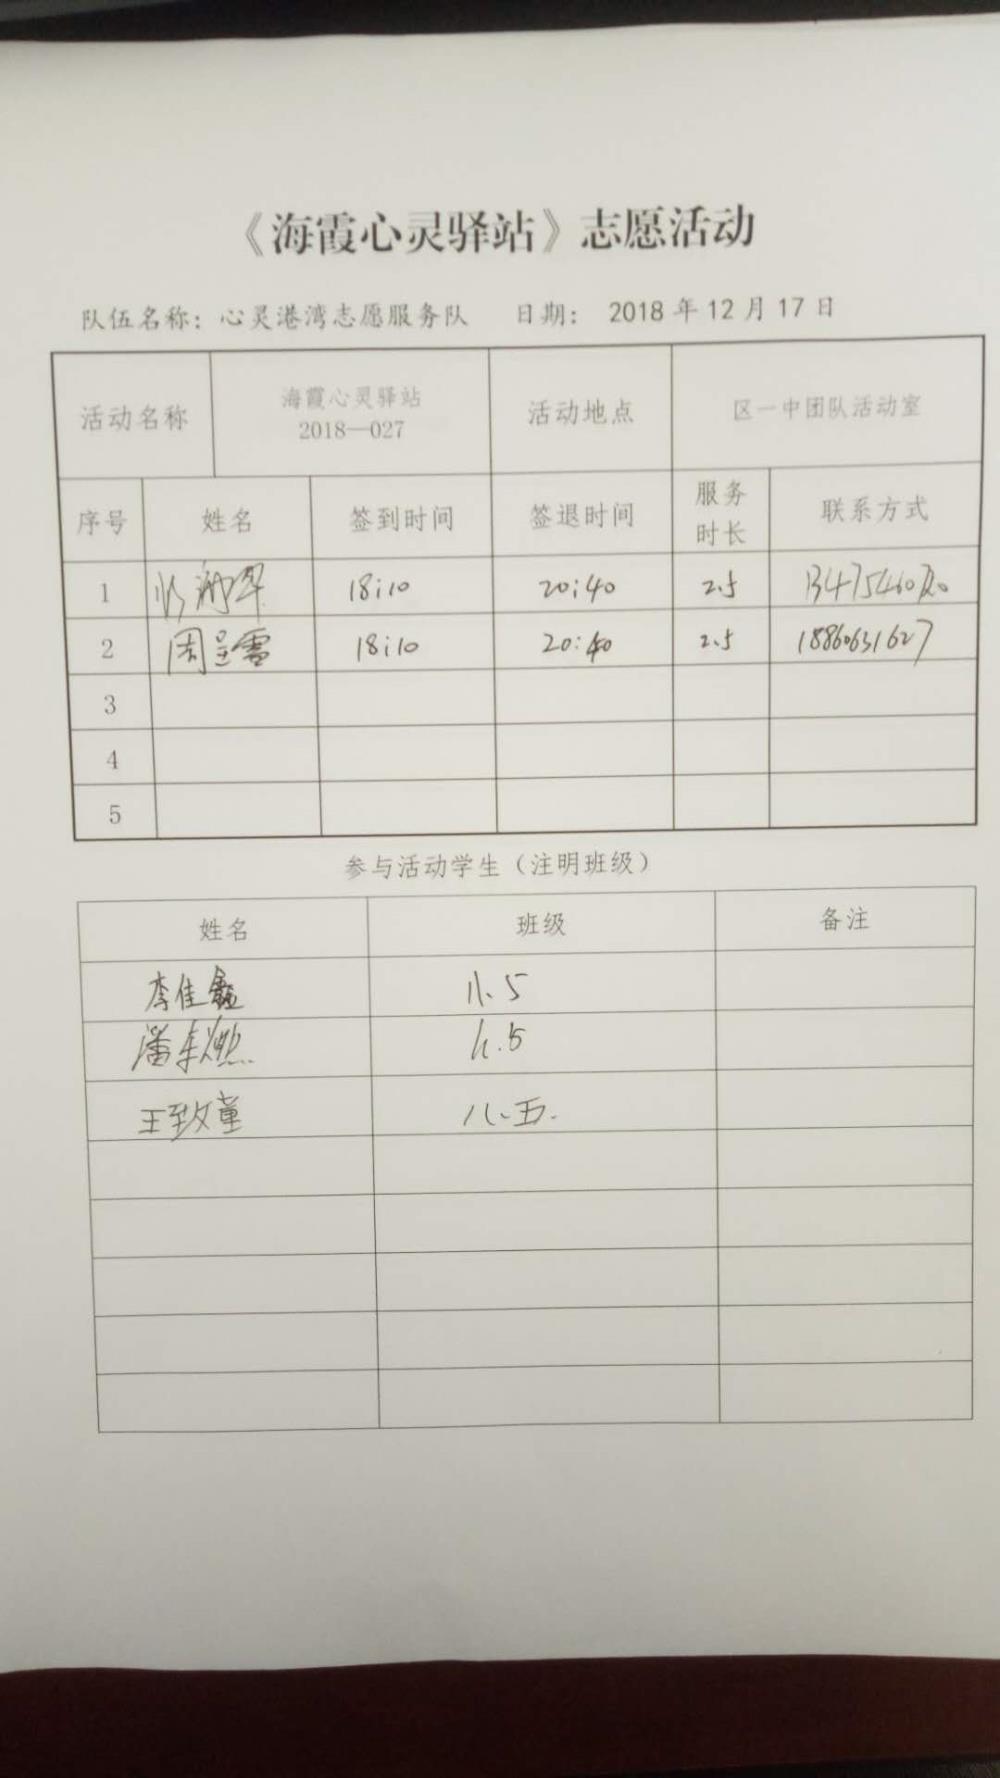 《海霞心灵驿站》志愿活动
队伍名称：心灵港湾志愿服务队 日期： 2018年12月17日
活动名称 海霞心灵驿站 2018—027 活动地点 区一中团队活动室
序号 姓名 签到时间 签退时间 服务时长 联系方式
1 18:10 20:40 2.5
2 周呈雪 18:10 20:40 2.5 18860631627
3
4
5
参与活动学生（注明班级）
姓名 班级 备注
李佳鑫 八.5
潘 八.5
王致童 八.五.